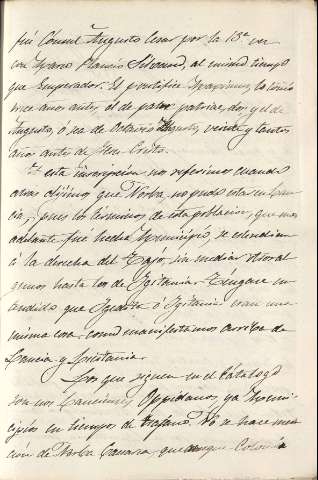 fué Cónsul Augusto Cesar por la 13ª vez
con Marco Plaucio Silvano, al mismo tiempo
que Emperador. El pontifice Maximo, lo tenia
once años antes, el de pater patriae, dos y el de
Augusto, ó sea de Octavio Augusto, veinte y tantos
años antes de Jesu Cristo.
A esta inscripcion nos referimos cuando
otras digimos que Norba, no pudo estar en Lan
cia, pues los terminos de esta poblacion, que mas
adelante fué hecha Municipio se estendian
á la derecha del Tajo, sin mediar otros al
gunos hasta los de Egitania. Téngase en
tendido que Igedita ó Egitania eran una
misma cosa, como manifestamos arriba de
Lancia y Lusitania.
Los que siguen en el Catálogo
son los Lancienses Oppidanos, ya Muni
cipios en tiempos de Trajano. No se hace men
ción de Norba Cesarea, que aunque Colonia